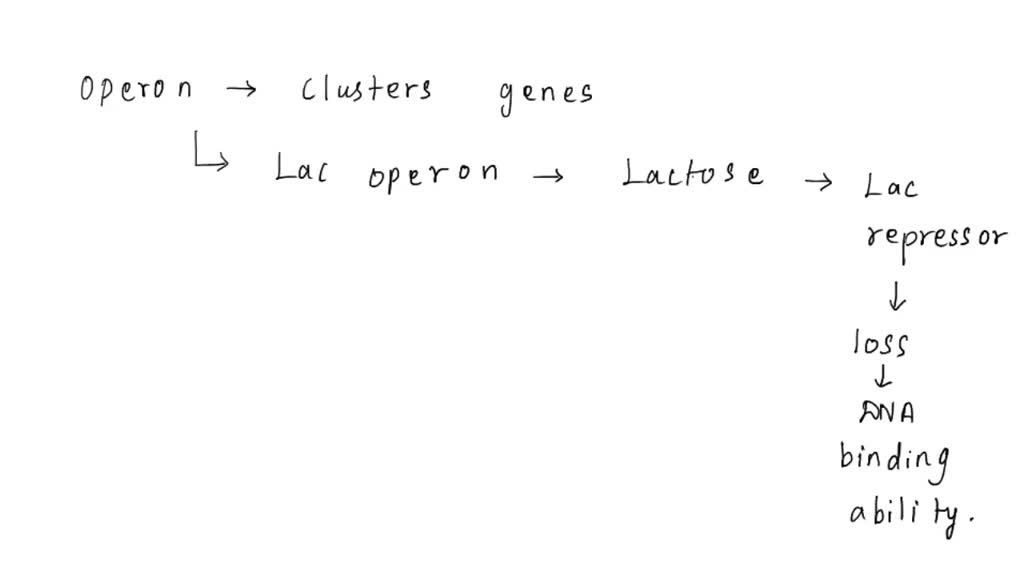 Operon → clusters genes
↳ Lac operon → Lactose → Lac
repressor
↓
loss
↓
DNA
binding
ability.